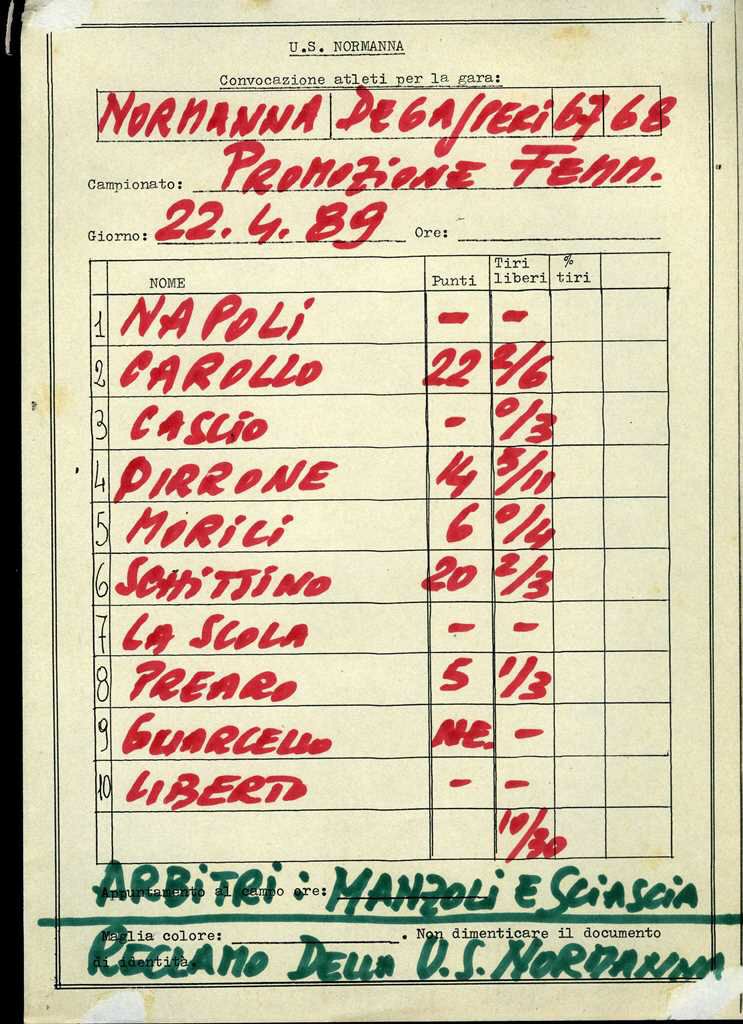 U.S. NORMANNA
Convocazione atleti per la gara:
NORMANNA DEGASPERI 67 68
Campionato: PROMOZIONE FEMM.
Giorno: 22.4.89 Ore:
NOME Punti Tiri liberi % tiri
1 NAPOLI - -
2 CAROLLO 22 2/6
3 CASCIO - 0/3
4 PIRRONE 14 5/11
5 MORICI 6 0/4
6 SCHITTINO 20 2/3
7 LA SCOLA - -
8 PREARO 5 1/3
9 GUARCELLO NE. -
10 LIBERTO - -
10/30
ARBITRI: MANZOLI E SCIASCIA
Appuntamento al campo ore:
Maglia colore: . Non dimenticare il documento
di identità.
RECLAMO DELLA U.S. NORMANNA